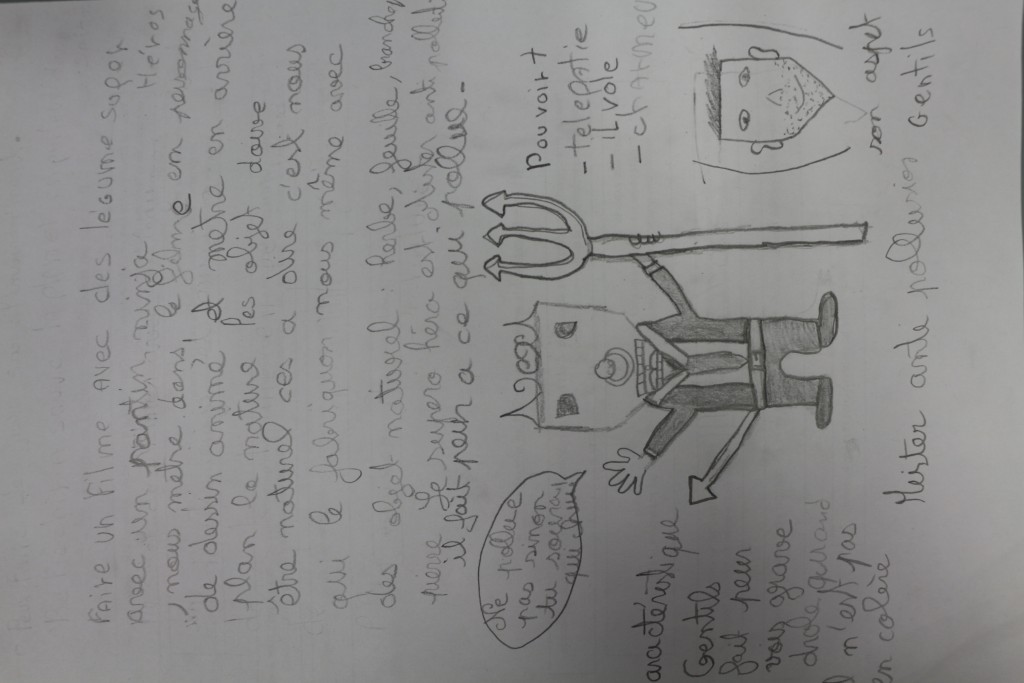 Faire un filme avec des légume super
Héros
avec un pantin ninja
nous mètre dans, le filme em personnase
de dessin animé et mètre en arrière
plan la nature les objet doive
être naturel ces a dire c'est nous
qui le fabriquon nous même avec
des objet naturel : herbe, feuille, branche,
pière le supero héro est mister anti pollution
il fait peur a ce qui pollue.
Ne pollue
pas sinon
tu
pouvoir +
- telepptie
- il vole
- CHARMEUR
son aspet
Gentils
aractéristique
Gentils
fait peur
voix grave
drole quand
il n'est pas
en colère
Mister anti pollution